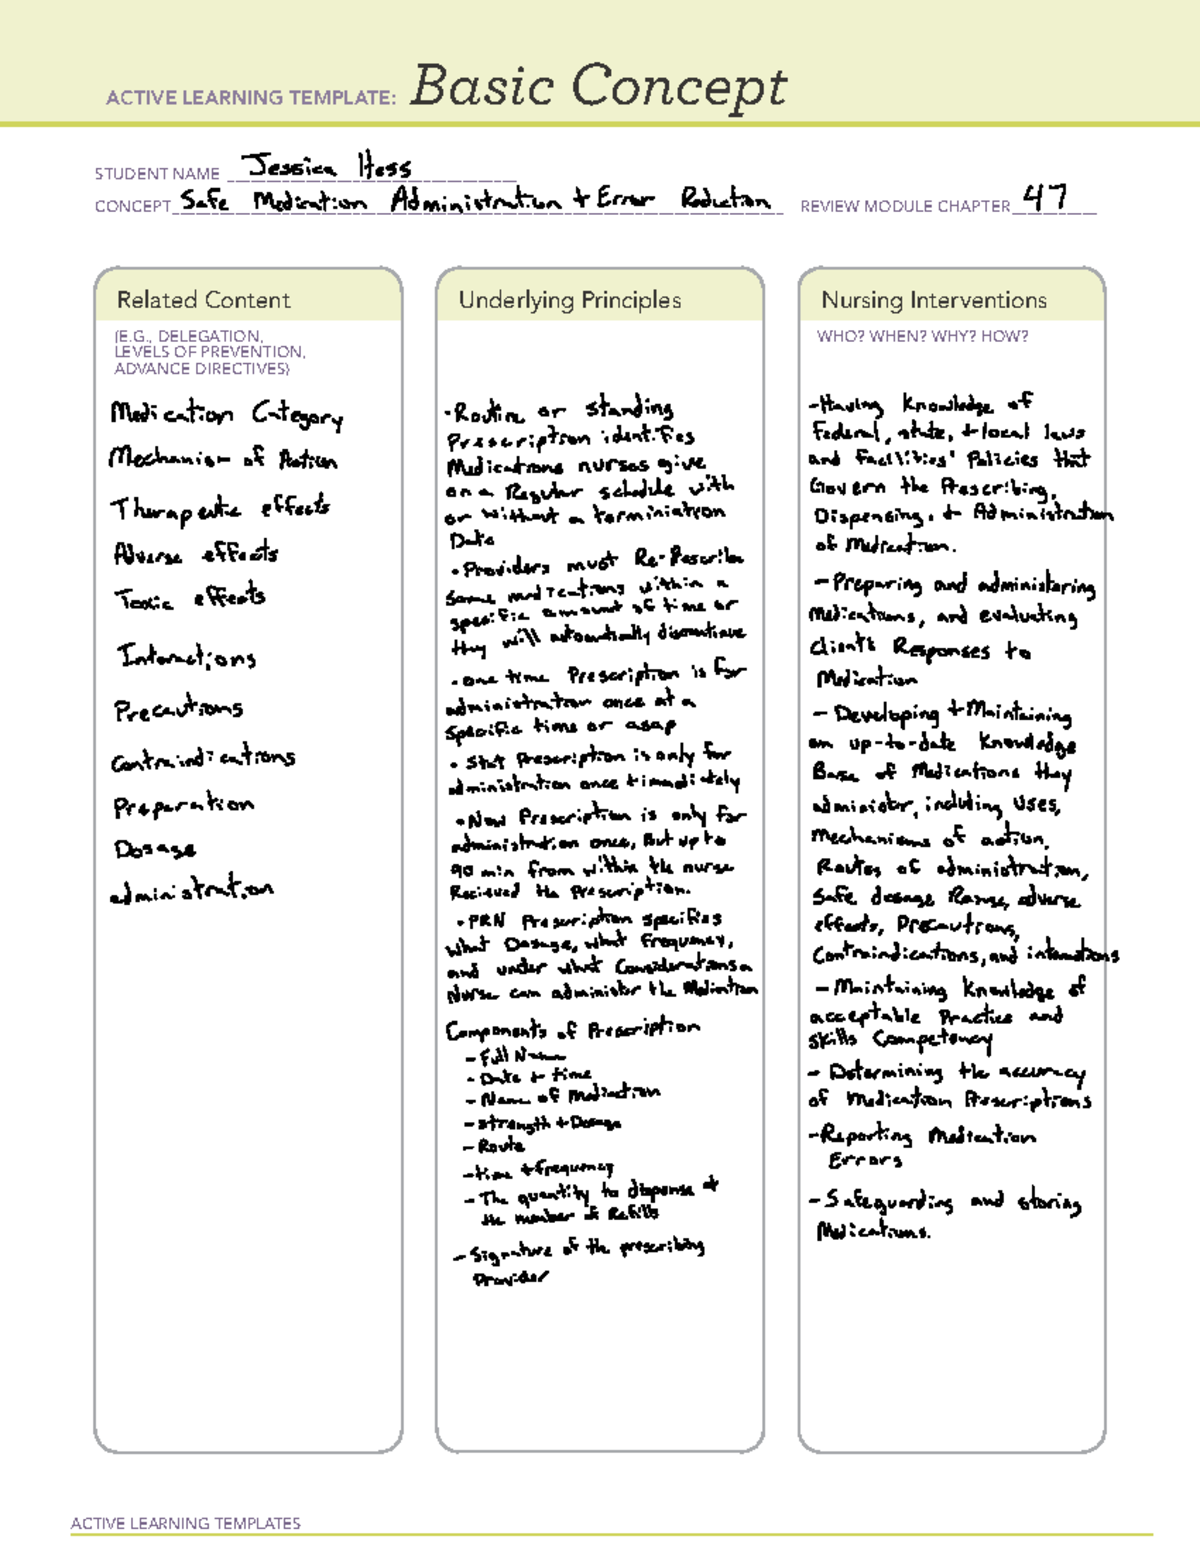 ACTIVE LEARNING TEMPLATE: Basic Concept
STUDENT NAME Jessica Hess
CONCEPT Safe Medication Administration + Error Reduction REVIEW MODULE CHAPTER 47
Related Content
(E.G., DELEGATION,
LEVELS OF PREVENTION,
ADVANCE DIRECTIVES)
Medication Category
Mechanism of Action
Therapeutic effects
Adverse effects
Toxic effects
Interactions
Precautions
Contraindications
Preparation
Dosage
administration
Underlying Principles
• Routine or standing
Prescription identifies
Medications nurses give
on a Regular schedule with
or without a termination
Date
• Providers must Re-Prescribe
some medications within a
specific amount of time or
they will automatically discontinue
• one time Prescription is for
administration once at a
specific time or asap
• Stat Prescription is only for
administration once + immediately
• Now Prescription is only for
administration once, But up to
90 min from within the nurse
Recieved the Prescription.
• PRN Prescription specifies
what Dosage, what frequency,
and under what Considerations a
Nurse can administer the Medication
Components of Prescription
- Full Name
- Date + time
- Name of Medication
- Strength + Dosage
- Route
- time + frequency
- The quantity to dispense +
the number of Refills
- Signature of the prescribing
Provider
Nursing Interventions
WHO? WHEN? WHY? HOW?
- Having Knowledge of
Federal, state, + local laws
and Facilities' Policies that
Govern the Prescribing,
Dispensing, + Administration
of Medication.
- Preparing and administering
Medications, and evaluating
Client's Responses to
Medication
- Developing + Maintaining
an up-to-date Knowledge
Base of Medications they
administer, including uses,
Mechanisms of action,
Routes of administration,
Safe dosage Range, adverse
effects, Precautions,
Contraindications, and interactions
- Maintaining Knowledge of
acceptable Practice and
skills Competency
- Determining the accuracy
of Medication Prescriptions
- Reporting Medication
Errors
- Safeguarding and storing
Medications.
ACTIVE LEARNING TEMPLATES